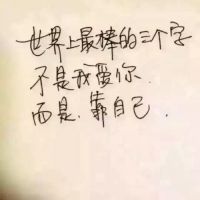 世界上最棒的三个字
不是我爱你.
而是.靠自己.